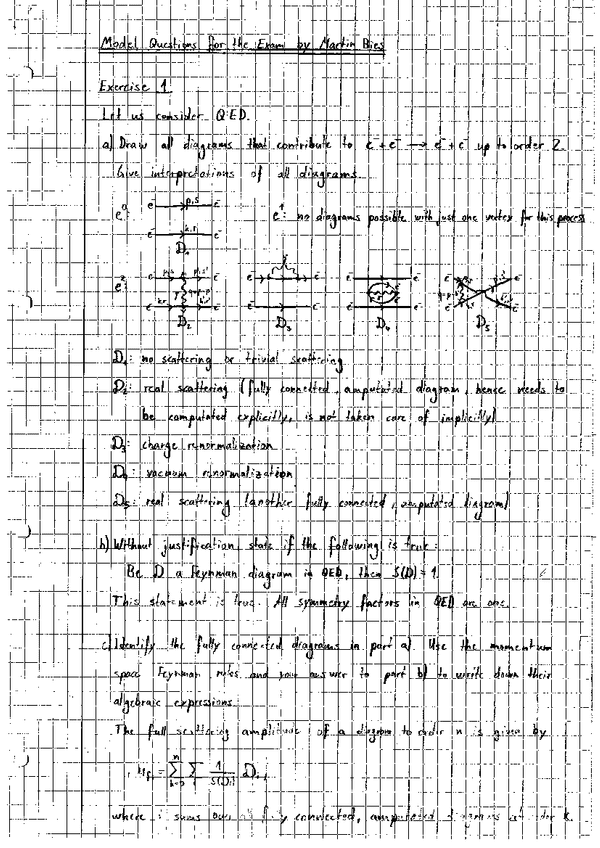 Model Questions for the Exam by Martin Bies
Exercise 1
Let us consider QED.
a) Draw all diagrams that contribute to e⁻+e⁻ → e⁻+e⁻ up to order 2.
Give interpretations of all diagrams.
e⁰: e⁻ p,s e⁻
e⁻ k,r e⁻
D₁
e¹: no diagrams possible with just one vertex for this process
e²:
D₂ D₃ D₄ D₅
D₁: no scattering or trivial scattering
D₂: real scattering (fully connected, amputated diagram, hence needs to
be computated explicitly, is not taken care of implicitly)
D₃: charge renormalization
D₄: vacuum renormalization
D₅: real scattering (another fully connected, amputated diagram)
b) Without justification, state if the following is true:
Be D a Feynman diagram in QED, then S(D) = 1.
This statement is true. All symmetry factors in QED are one.
c) Identify the fully connected diagrams in part a). Use the momentum
space Feynman rules and your answer to part b) to write down their
algebraic expressions.
The full scattering amplitude of a diagram to order n is given by
= Σ Σ 1/S(Dᵢ) Dᵢ,
where i sums over all fully connected, amputated diagrams of order k.